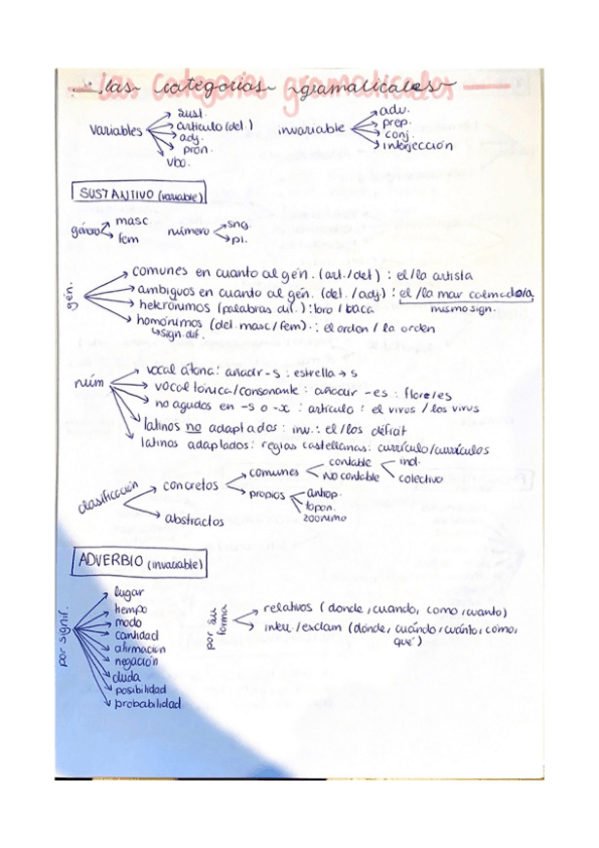 las categorías gramaticales
variables
sust.
artículo (det.)
adj.
pron.
vbo.
invariable
adv.
prep.
conj.
interjección
SUSTANTIVO (variable)
género
masc
fem
número
sng.
pl.
gén.
comunes en cuanto al gén. (art./det) : el/la artista
ambiguos en cuanto al gén. (det./adj) : el/la mar calmado/a
mismo sign.
heterónimos (palabras dif.) : toro / vaca
homónimos (del. masc/fem). : el orden / la orden
sign. dif.
núm
vocal átona: añadir -s : estrella → s
vocal tónica/consonante : añadir -es : flore/es
no agudos en -s o -x : artículo : el virus / los virus
latinos no adaptados : inv. : el/los déficit
latinos adaptados: reglas castellanas: currículo/currículos
clasificación
concretos
comunes
contable
ind.
colectivo
no contable
propios
antrop.
topon.
zoónimo
abstractos
ADVERBIO (invariable)
por signif.
lugar
tiempo
modo
cantidad
afirmación
negación
duda
posibilidad
probabilidad
por su forma
relativos (donde, cuando, como, cuanto)
inter/exclam (dónde, cuándo, cuánto, cómo,
qué)